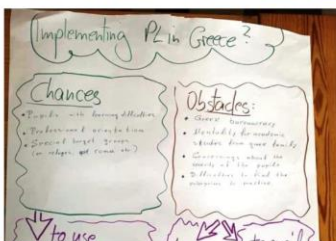 Implementing PL in Greece?
Chances
• Pupils with learning difficulties
• Professional orientation
• Special target groups
(in refugee
Obstacles:
• Greek bureaucracy
• Mentality for academic
studies from greek family
• about the
needs of the pupils
• Difficulties to find the
to use